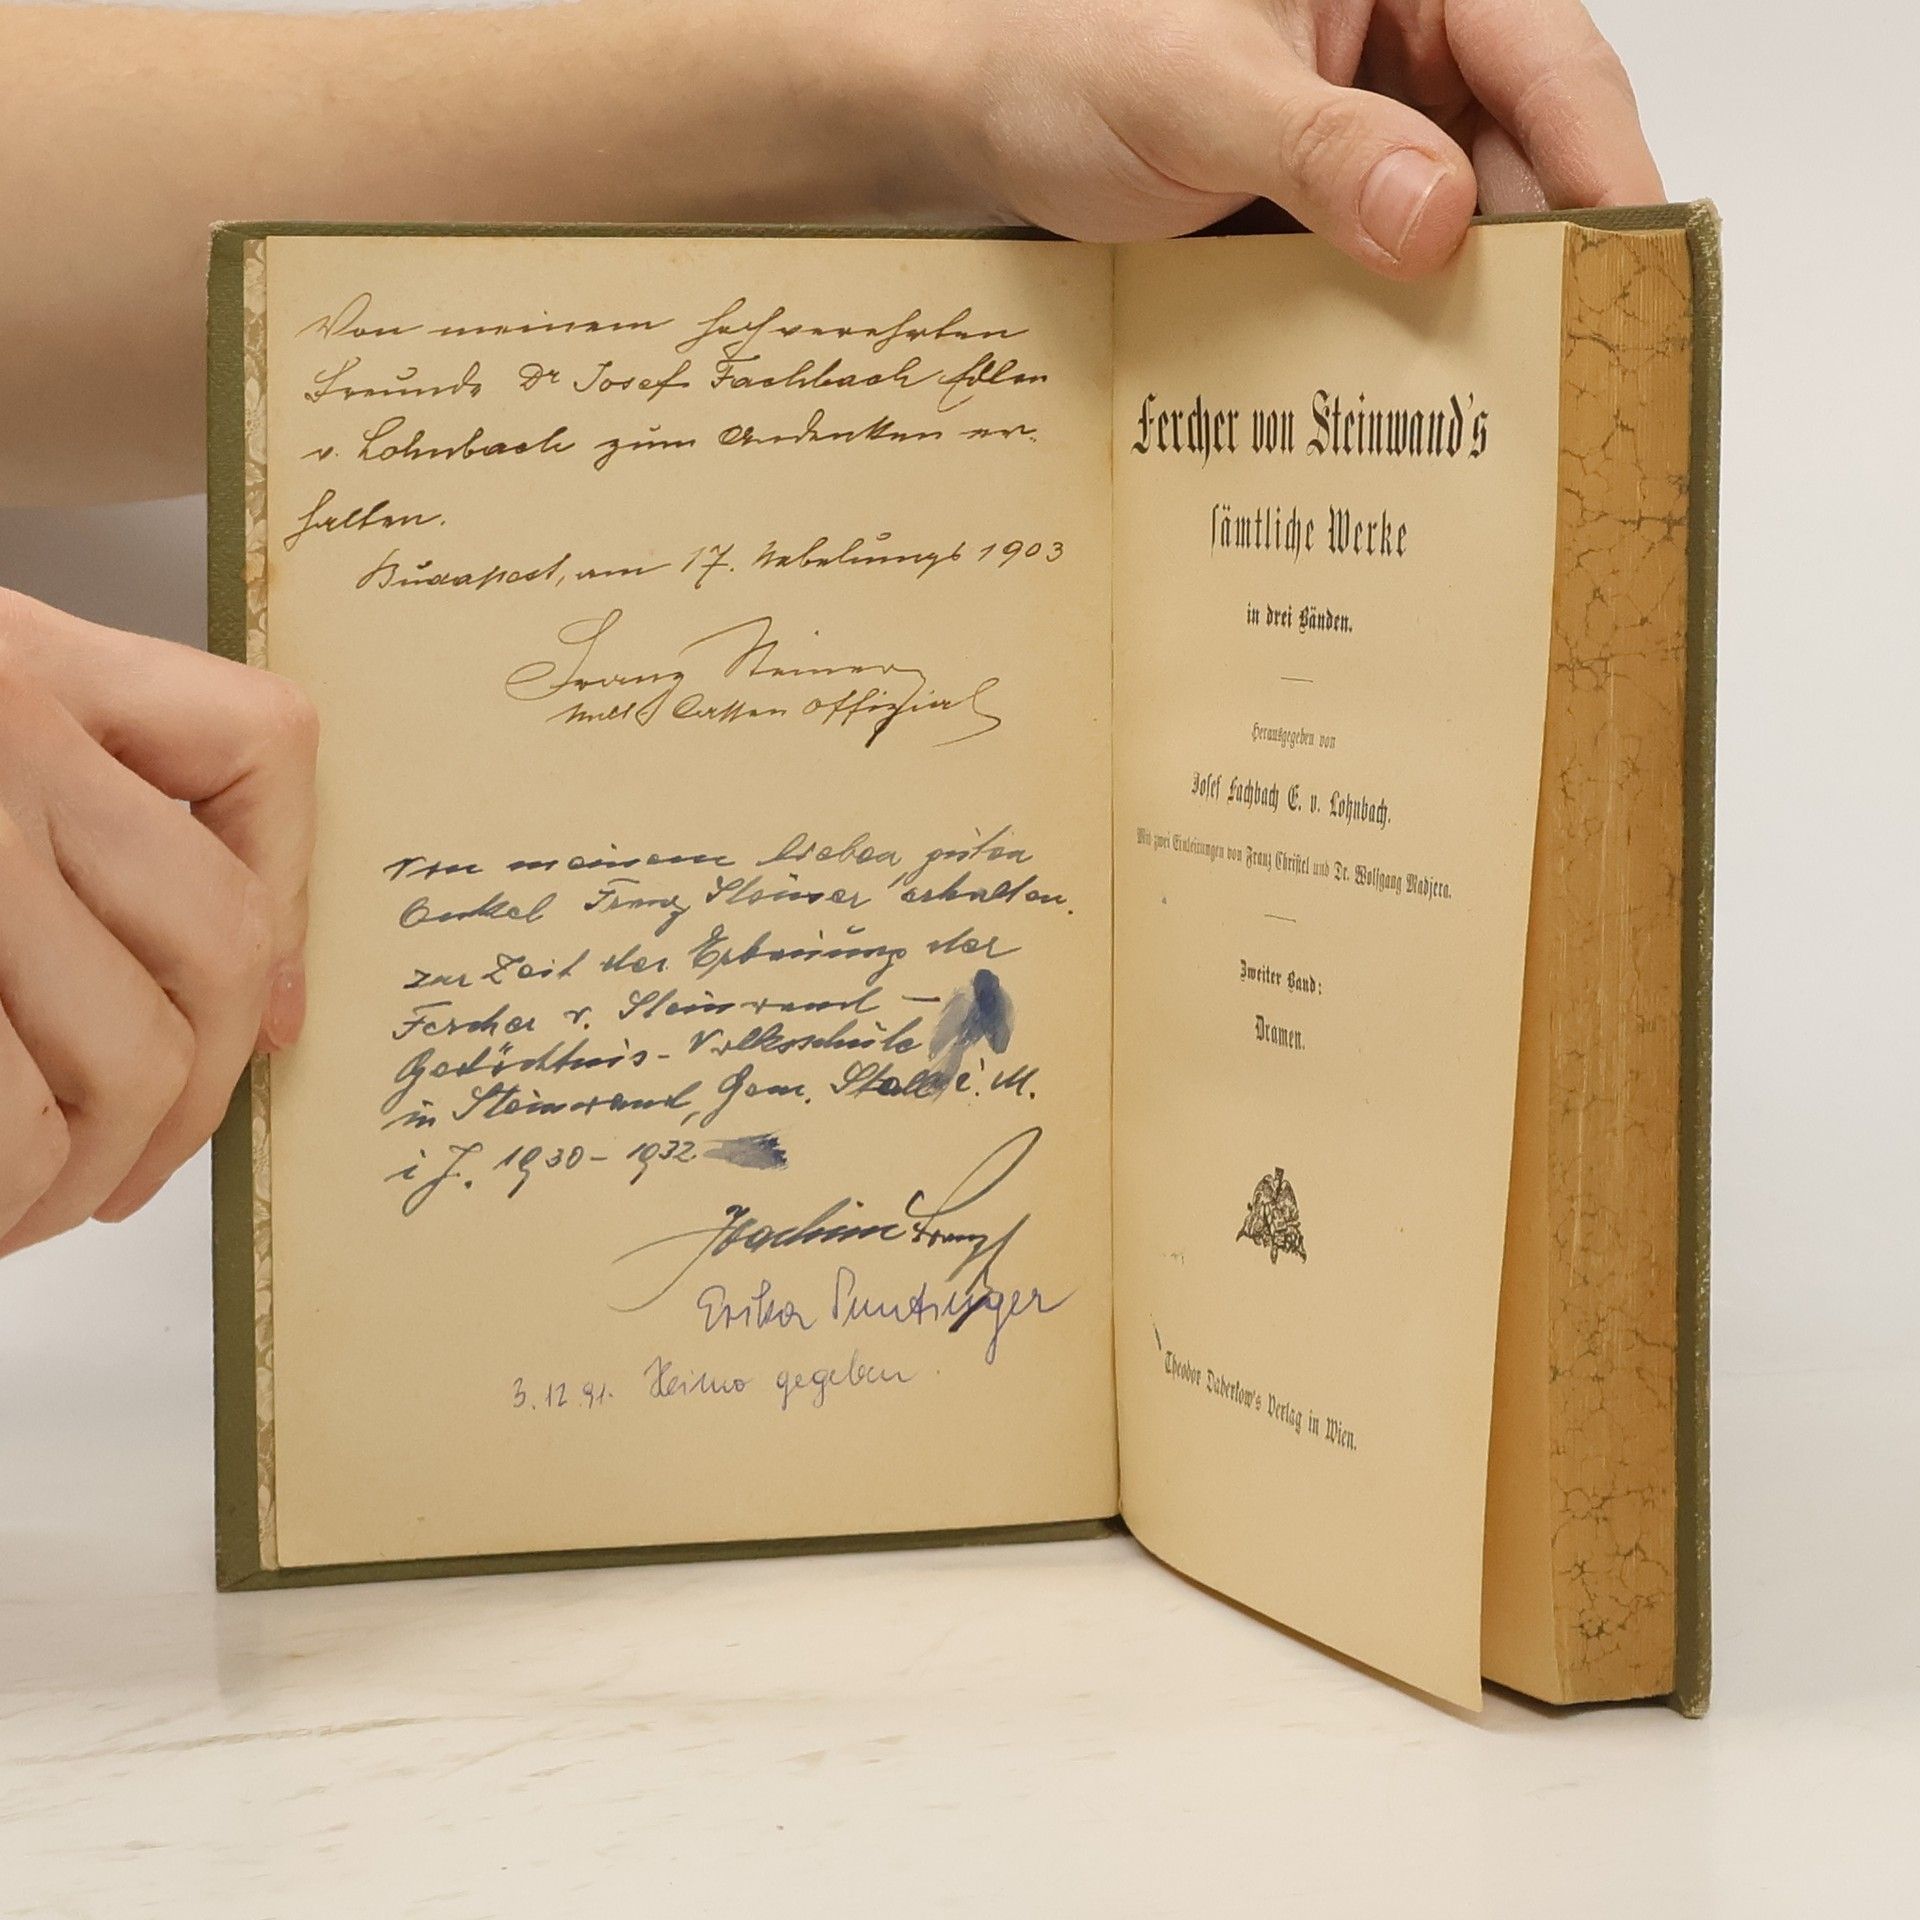 Von meinem hochverehrten
Freunde Dr Josef Fachbach Edlen
v. Lohnbach zum Andenken er-
halten.
Budapest, am 17. Nebelungs 1903
Franz Steiner
Cassen Offizial
Von meinem lieben, guten
Onkel Franz Steiner erhalten.
zur Zeit der Erbauung der
Fercher v. Steinwand –
Gedächtnis-Volksschule
in Steinwand, Gem. Stall i. M.
i J. 1930 – 1932
Joachim Franz
Erika
3.12.91. Heimo gegeben.
Fercher von Steinwand's
sämtliche Werke
in drei Bänden.
Herausgegeben von
Josef Fachbach E. v. Lohnbach.
Mit zwei Einleitungen von Franz Christel und Dr. Wolfgang Madjera.
Zweiter Band:
Dramen.
Theodor Daberkow's Verlag in Wien.